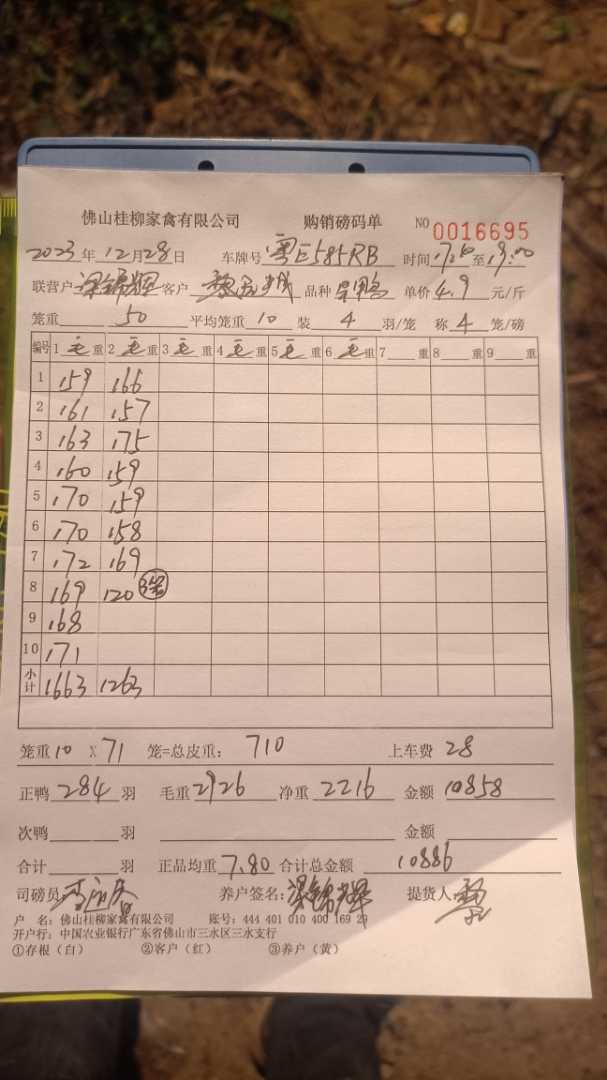 佛山桂柳家禽有限公司 购销磅码单 NO 0016695
2023年12月28日 车牌号 粤E585RB 时间 至19:00
联营户梁锦辉客户 品种 单价4.9元/斤
笼重50 平均笼重10 装4羽/笼 称4笼/磅
编号 1毛重 2毛重 3毛重 4毛重 5毛重 6毛重 7重 8重 9重
1 159 166
2 161 157
3 163 175
4 160 159
5 170 159
6 170 158
7 172 169
8 169 120 3笼
9 168
10 171
小计 1663 1263
笼重10 X 71 笼=总皮重: 710 上车费 28
正鸭284羽 毛重2926 净重2216 金额10858
次鸭 羽 金额
合计 羽 正品均重7.80 合计总金额 10886
司磅员 养户签名:梁锦辉 提货人:
户 名: 佛山桂柳家禽有限公司 账号: 444 401 010 400 169 29
开户行: 中国农业银行广东省佛山市三水区三水支行
①存根(白) ②客户(红) ③养户(黄)